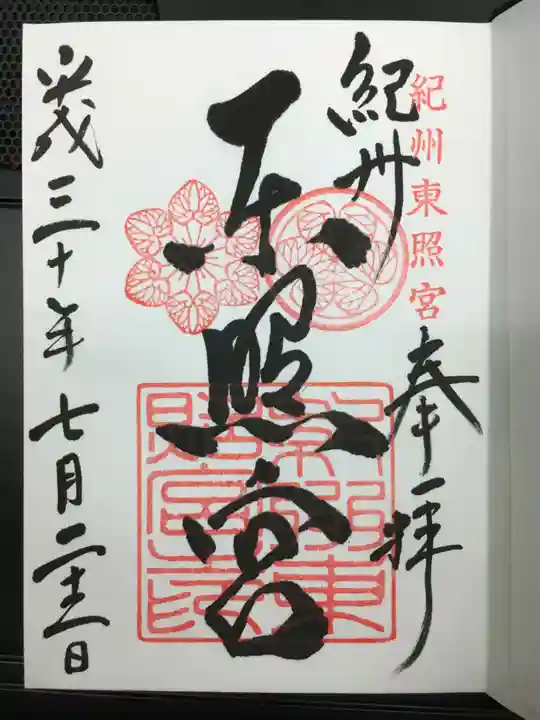 紀州東照宮
奉拝
紀州
東照宮
平成三十年七月二十一日